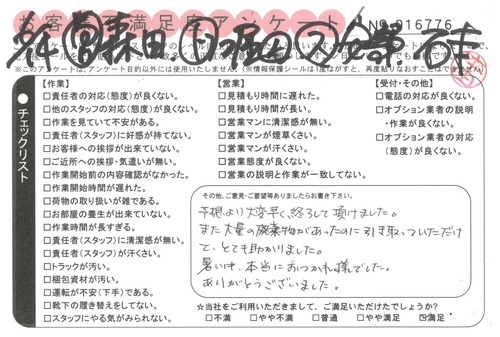 お客様満足度アンケート
NO.016776
※このアンケートは、アンケート目的以外には使用いたしません。(※情報保護シールは1度はがすと、再度貼りなおすことはできません)
チェックリスト
【作業】
□責任者の対応(態度)が良くない。
□他のスタッフの対応(態度)が良くない。
□作業を見ていて不安がある。
□責任者(スタッフ)に好感が持てない。
□お客様への挨拶が出来ていない。
□ご近所への挨拶・気遣いが無い。
□作業開始前の内容確認がなかった。
□作業開始時間が遅れた。
□荷物の取り扱いが雑である。
□お部屋の養生が出来ていない。
□作業時間が長すぎる。
□責任者(スタッフ)に清潔感が無い。
□責任者(スタッフ)が汗くさい。
□トラックが汚い。
□梱包資材が汚い。
□運転が不安(下手)である。
□靴下の履き替えをしてない。
□スタッフにやる気がみられない。
【営業】
□見積もり時間に遅れた。
□見積もり時間が長い。
□営業マンに清潔感が無い。
□営業マンが煙草くさい。
□営業マンが汗くさい。
□営業態度が良くない。
□営業の説明と作業が一致してない。
【受付・その他】
□電話の対応が良くない。
□オプション業者の説明・作業が良くない。
□オプション業者の対応(態度)が良くない。
その他、ご意見・ご要望等ありましたらお書き下さい。
予想より大変早く、終らして頂けました。
また大量の廃棄物があったのに引き取っていただけ
て、とても助かりました。
暑い中、本当におつかれ様でした。
ありがとうございました。
☆当社をご利用いただきまして、ご満足いただけたでしょうか?
□不満 □やや不満 □普通 □やや満足 ☑満足